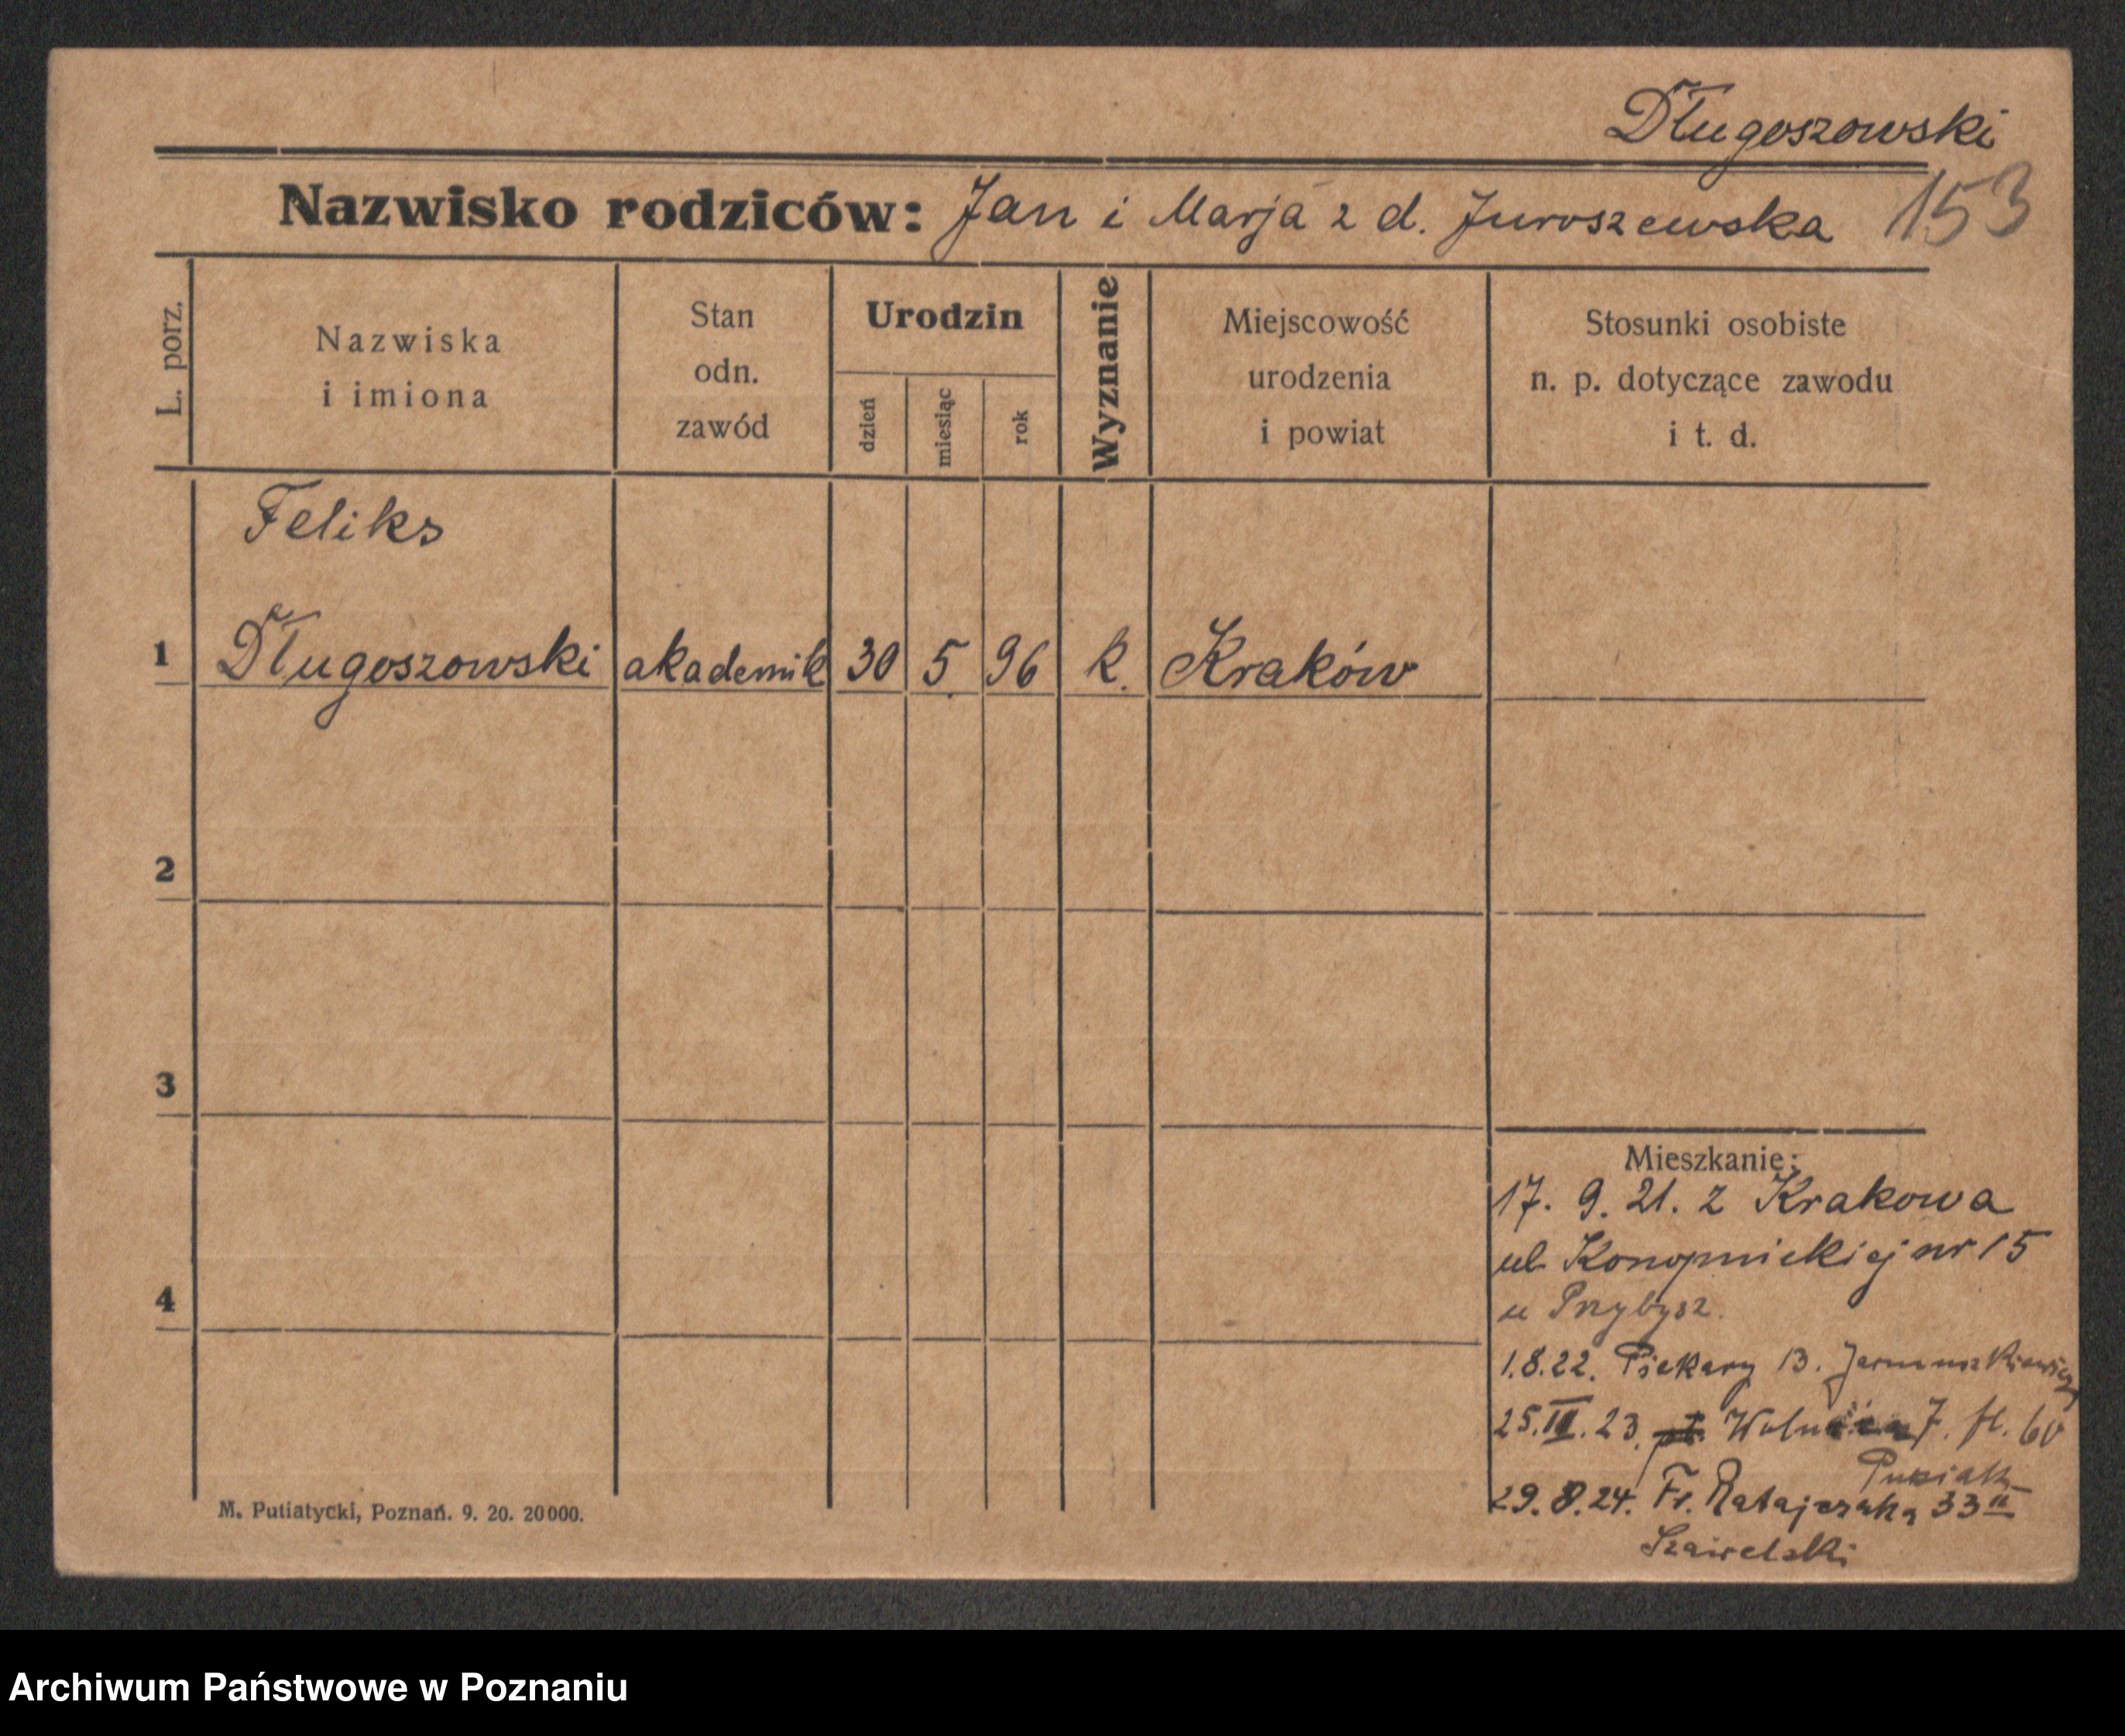 Długoszowski
Nazwisko rodziców: Jan i Marja z d. Juroszewska 153
L. porz.
Nazwiska
i imiona
Stan
odn.
zawód
Urodzin
dzień
miesiąc
rok
Wyznanie
Miejscowość
urodzenia
i powiat
Stosunki osobiste
n. p. dotyczące zawodu
i t. d.
Feliks
1 Długoszowski akademik 30 5 96 k. Kraków
2
3
4
Mieszkanie:
17. 9. 21. z Krakowa
ul Konopnickiej nr 15
u Przybysz.
1.8.22. Piekary 13.
25.III.23. 7. fl. 60
29.8.24. Fr. Ratajczaka 33 II
M. Putiatycki, Poznań. 9. 20. 20000.
Archiwum Państwowe w Poznaniu